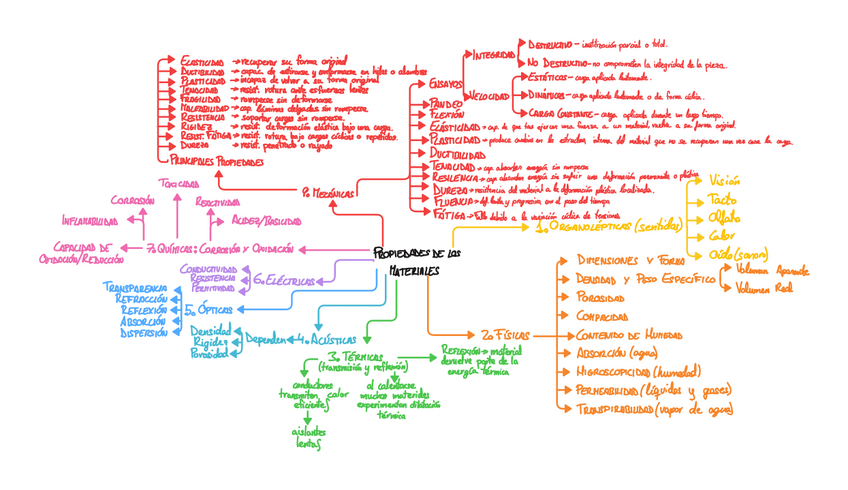 PROPIEDADES DE LOS
MATERIALES
1. ORGANOLÉPTICAS (sentidos)
Visión
Tacto
Olfato
Calor
Oído (sonoro)
2. FÍSICAS
DIMENSIONES Y FORMA
DENSIDAD Y PESO ESPECÍFICO
Volumen Aparente
Volumen Real
POROSIDAD
COMPACIDAD
CONTENIDO DE HUMEDAD
ABSORCIÓN (agua)
HIGROSCOPICIDAD (humedad)
PERMEABILIDAD (líquidos y gases)
TRANSPIRABILIDAD (vapor de agua)
3. TÉRMICAS
(transmisión y reflexión)
REFLEXIÓN → material
devuelve parte de la
energía térmica
conductores
transmiten calor
eficientes
aislantes
lentas
al calentarse
muchos materiales
experimentan dilatación
térmica
4. ACÚSTICAS
Dependen
Densidad
Rigidez
Porosidad
5. ÓPTICAS
TRANSPARENCIA
REFRACCIÓN
REFLEXIÓN
ABSORCIÓN
DISPERSIÓN
6. ELÉCTRICAS
CONDUCTIVIDAD
RESISTENCIA
PERMITIVIDAD
7. QUÍMICAS: CORROSIÓN Y OXIDACIÓN
CAPACIDAD DE
OXIDACIÓN/REDUCCIÓN
INFLAMABILIDAD
CORROSIÓN
TOXICIDAD
REACTIVIDAD
ACIDEZ/BASICIDAD
P. MECÁNICAS
PRINCIPALES PROPIEDADES
ELASTICIDAD → recuperar su forma original
DUCTIBILIDAD → capac. de estirarse y conformarse en hilos o alambres
PLASTICIDAD → incapaz de volver a su forma original
TENACIDAD → resist. rotura ante esfuerzos lentos
FRAGILIDAD → romperse sin deformarse
MALEABILIDAD → cap. láminas delgadas sin romperse.
RESISTENCIA → soportar cargas sin romperse.
RIGIDEZ → resist. deformación elástica bajo una carga.
RESIST. FATIGA → resist. rotura, bajo cargas cíclicas o repetidas.
DUREZA → resist. penetrado o rayado
ENSAYOS
INTEGRIDAD
DESTRUCTIVO - inutilización parcial o total.
NO DESTRUCTIVO - no comprometen la integridad de la pieza.
VELOCIDAD
ESTÁTICOS - carga aplicada lentamente.
DINÁMICOS - carga aplicada lentamente o de forma cíclica.
CARGA CONSTANTE - carga aplicada durante un largo tiempo.
PANDEO
FLEXIÓN
ELASTICIDAD → cap. de que tras ejercer una fuerza a un material, vuelva a su forma original
PLASTICIDAD → produce cambios en la estructura interna del material que no se recuperan una vez cesa la carga.
DUCTIBILIDAD
TENACIDAD → cap. absorber energía sin romperse
RESILENCIA → cap. absorber energía sin sufrir una deformación permanente o plástica
DUREZA → resistencia del material a la deformación plástica localizada.
FLUENCIA → def. lenta y progresiva con el paso del tiempo
FATIGA → Fallo debido a la variación cíclica de tensiones